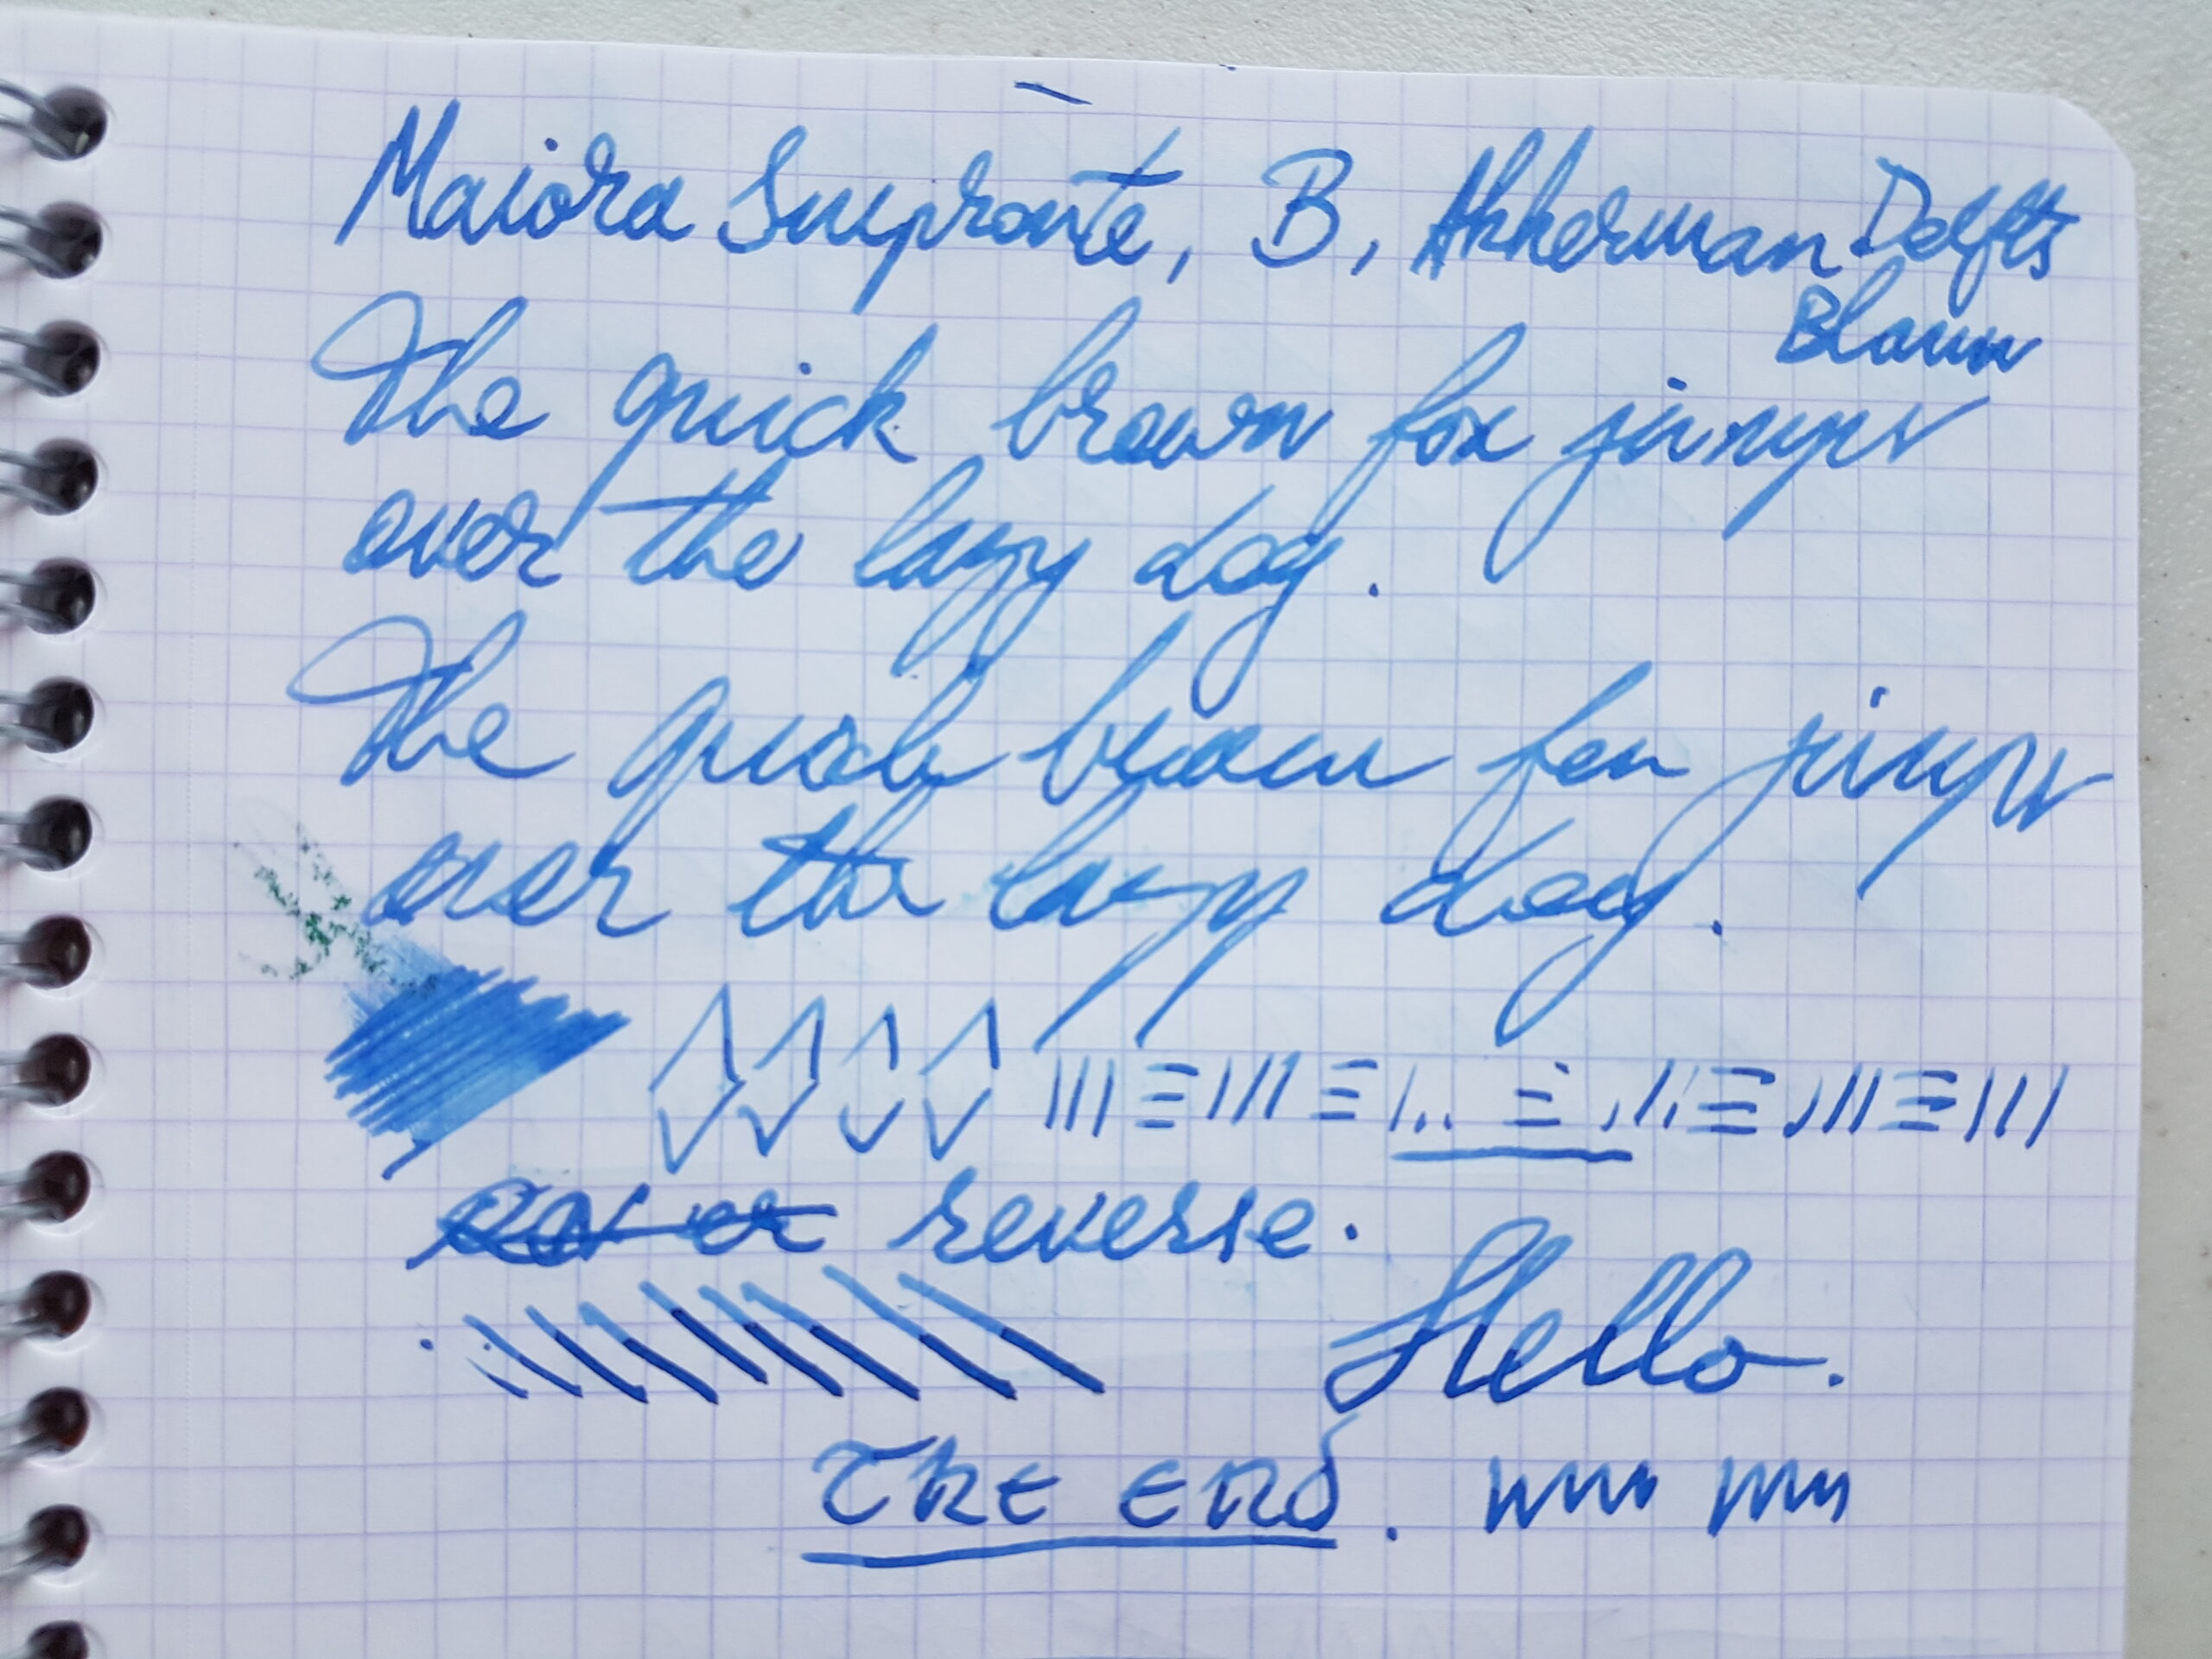 Maiora Impronte, B, Akkerman Delfts
Blauw
The quick brown fox jumps
over the lazy dog.
The quick brown fox jumps
over the lazy dog.
reverse.
Hello.
The end.